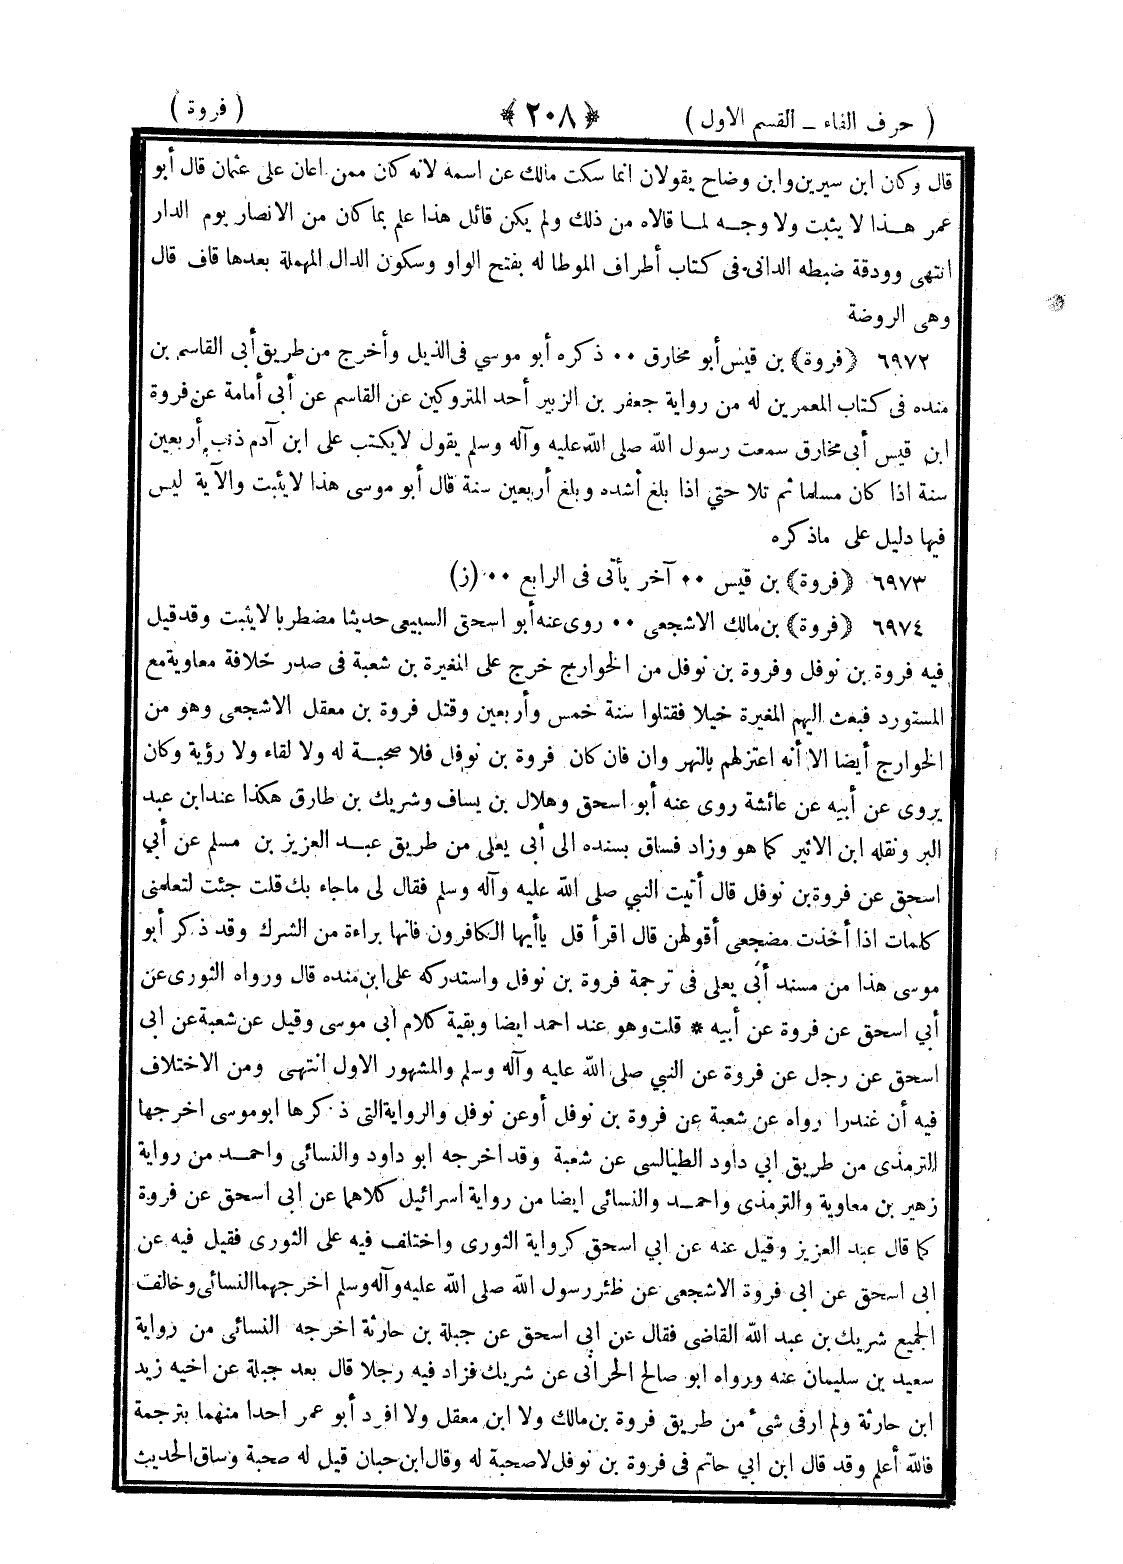 ( حرف الفاء – القسم الاول )  ﴿ ٢٠٨ ﴾  ( فروة )
قال وكان ابن سيرين وابن وضاح يقولان انما سكت مالك عن اسمه لانه كان ممن اعان على عثمان قال أبو
عمر هـذا لا يثبت ولا وجـه لمـا قالاه من ذلك ولم يكن قائل هذا علم بما كان من الانصار يوم الدار
انتهى وودقة ضبطه الدانى فى كتاب أطراف الموطا له بفتح الواو وسكون الدال المهملة بعدها قاف قال
وهى الروضة
٦٩٧٢ ﴿فروة﴾ بن قيس أبو مخارق ٠٠ ذكره أبو موسي فى الذيل وأخرج من طريق أبى القاسم بن
منده فى كتاب المعمرين له من رواية جعفر بن الزبير أحد المتروكين عن القاسم عن أبى أمامة عن فروة
ابن قيس أبى مخارق سمعت رسول الله صلى الله عليه وآله وسلم يقول لا يكتب على ابن آدم ذنب أربعين
سنة اذا كان مسلما ثم تلا حتي اذا بلغ أشده وبلغ أربعين سنة قال أبو موسى هذا لا يثبت والآية ليس
فيها دليل على ماذكره
٦٩٧٣ ﴿فروة﴾ بن قيس ٠٠ آخر يأتى فى الرابع ٠٠ (ز)
٦٩٧٤ ﴿فروة﴾ بن مالك الاشجعى ٠٠ روى عنه أبو اسحق السبيعى حديثا مضطربا لا يثبت وقد قيل
فيه فروة بن نوفل وفروة بن نوفل من الخوارج خرج على المغيرة بن شعبة فى صدر خلافة معاوية مع
المستورد فبعث اليهم المغيرة خيلا فقتلوا سنة خمس وأربعين وقتل فروة بن معقل الاشجعى وهو من
الخوارج أيضا الا أنه اعتزلهم بالنهر وان فان كان فروة بن نوفل فلا صحبـة له ولا لقاء ولا رؤية وكان
يروى عن أبيه عن عائشة روى عنه أبو اسحق وهلال بن يساف وشريك بن طارق هكذا عند ابن عبد
البر ونقله ابن الاثير كما هو وزاد فساق بسنده الى أبى يعلى من طريق عبـد العزيز بن مسلم عن أبي
اسحق عن فروة بن نوفل قال أتيت النبي صلى الله عليه وآله وسلم فقال لى ماجاء بك قلت جئت لتعلمنى
كلمات اذا أخذت مضجعى أقولهن قال اقرأ قل ياأيها الكافرون فانها براءة من الشرك وقد ذكر أبو
موسى هذا من مسند أبى يعلى فى ترجمة فروة بن نوفل واستدركه على ابن منده قال ورواه الثورى عن
أبي اسحق عن فروة عن أبيه * قلت وهو عند احمد ايضا وبقية كلام أبى موسى وقيل عن شعبة عن ابى
اسحق عن رجل عن فروة عن النبي صلى الله عليه وآله وسلم والمشهور الاول انتهى ومن الاختلاف
فيه أن غندرا رواه عن شعبة عن فروة بن نوفل أوعن نوفل والرواية التى ذكرها ابوموسى اخرجها
الترمذى من طريق ابي داود الطيالسى عن شعبة وقد اخرجه ابو داود والنسائى واحمـد من رواية
زهير بن معاوية والترمذى واحمـد والنسائى ايضا من رواية اسرائيل كلاهما عن ابى اسحق عن فروة
كما قال عبد العزيز وقيل عنه عن ابي اسحق كرواية الثورى واختلف فيه على الثورى فقيل فيه عن
ابى اسحق عن ابى فروة الاشجعى عن ظئر رسول الله صلى الله عليه وآله وسلم اخرجهما النسائى وخالف
الجميع شريك بن عبد الله القاضى فقال عن ابى اسحق عن جبلة بن حارثة اخرجه النسائى من رواية
سعيد بن سليمان عنه ورواه ابو صالح الحرانى عن شريك فزاد فيه رجلا قال بعد جبلة عن اخيه زيد
ابن حارثة ولم ارفى شئ من طريق فروة بن مالك ولا ابن معقل ولا افرد أبو عمر احدا منهما بترجمة
فالله أعلم وقد قال ابن ابي حاتم فى فروة بن نوفل لاصحبة له وقال ابن حبان قيل له صحبة وساق الحديث